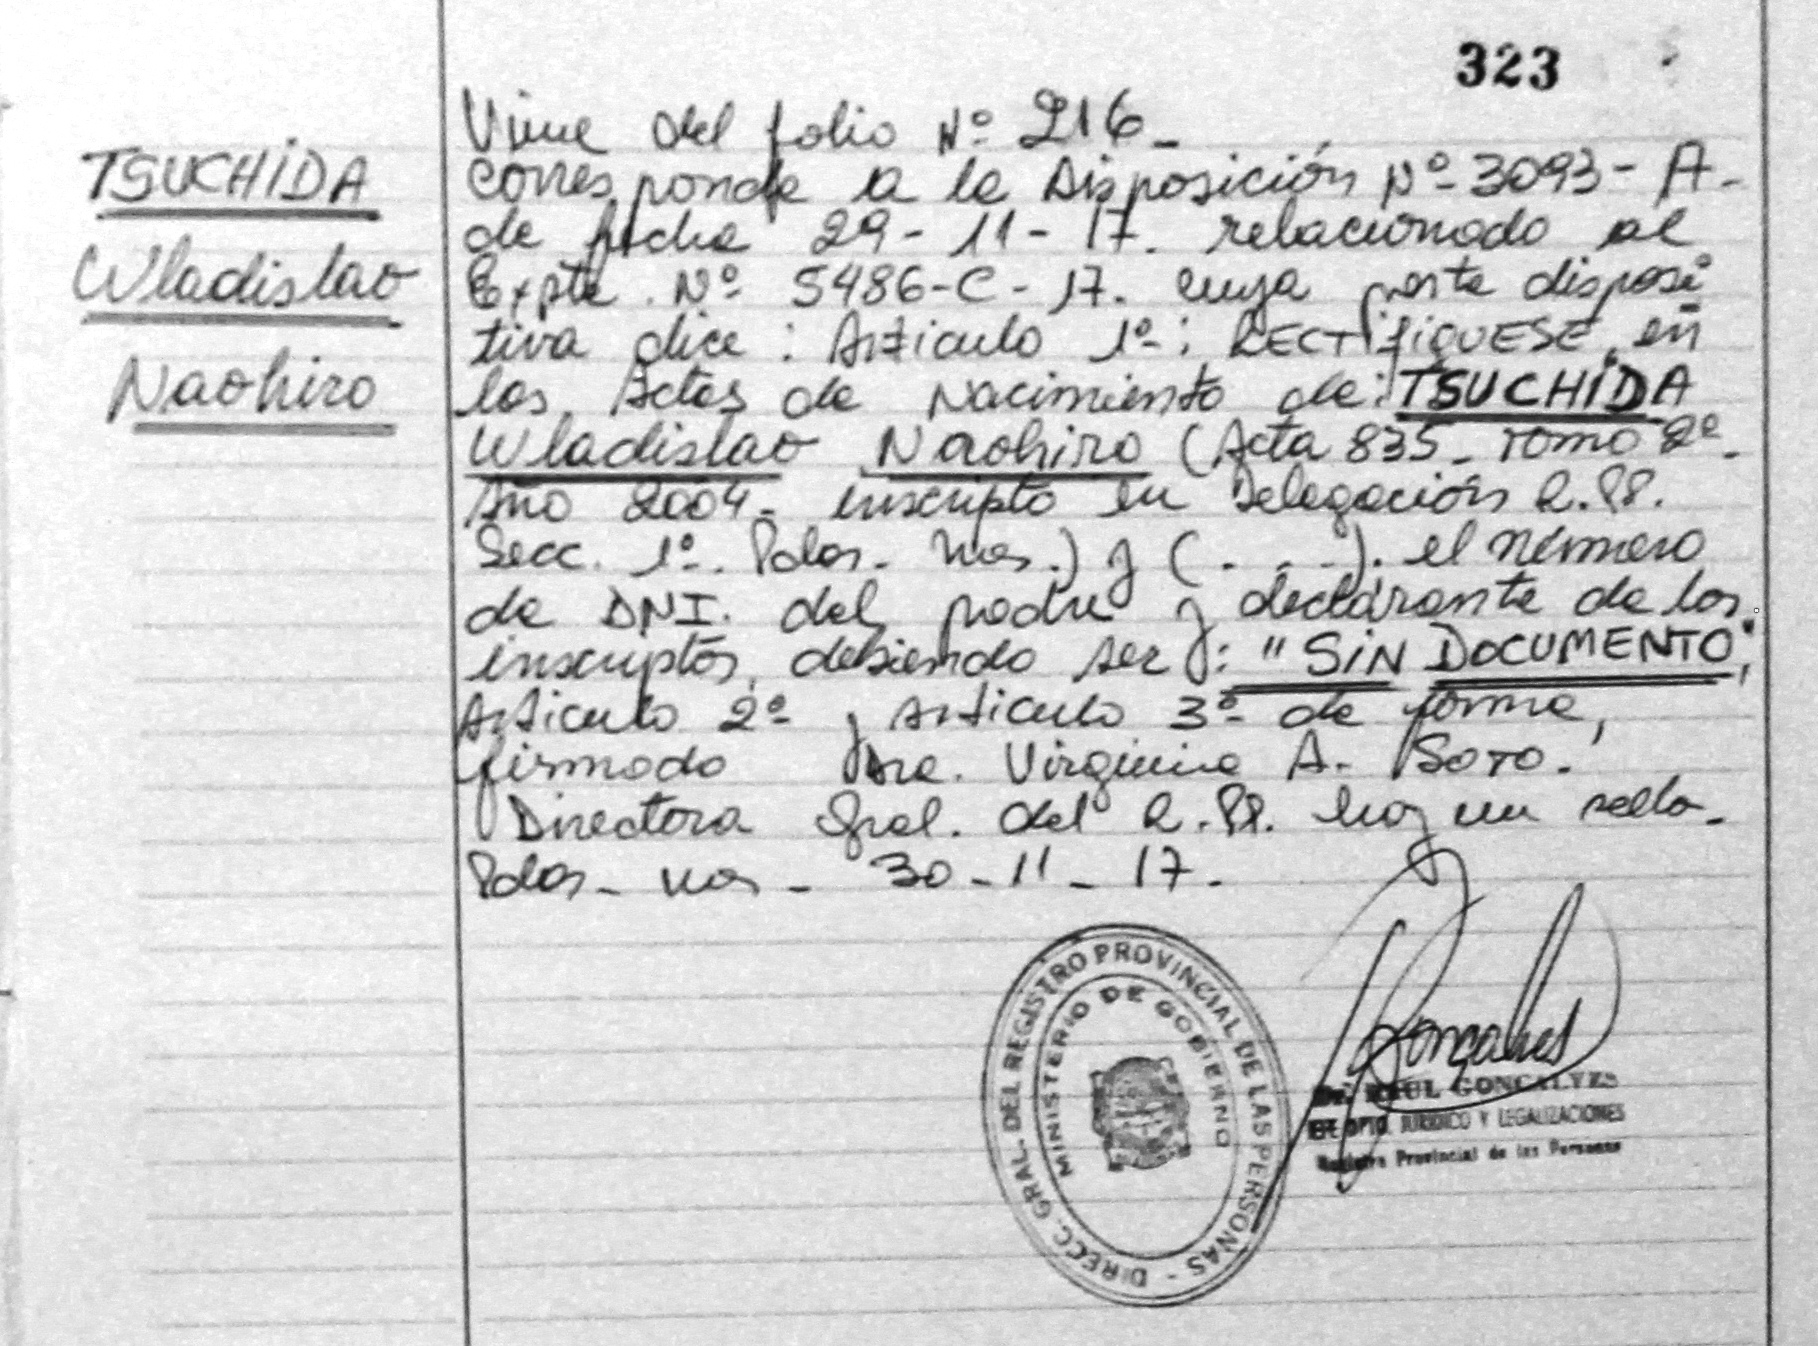 323
TSUCHIDA
Wladislao
Naohiro
Viene del folio Nº 216_
Corresponde a la Disposición Nº 3093-A-
de fecha 29-11-17. relacionado al
Expte. Nº 5486-C-17. cuya parte disposi
tiva dice: Artículo 1º: RECTIFIQUESE, en
las Actas de Nacimiento de: TSUCHIDA
Wladislao Naohiro (Acta 835_ Tomo 2º_
Año 2004_ inscripto en Delegación R.PP.
Secc. 1º. Pdas. Mns.) y (. _ _). el número
de DNI. del padre y declarante de los
inscriptos, debiendo ser: "SIN DOCUMENTO",
Artículo 2º y Artículo 3º de forma,
firmado Dra. Virginia A. SOTO.
Directora Gral. del R.PP. hay un sello_
Pdas_ Mns_ 30_11_17.
DIRECC. GRAL. DEL REGISTRO PROVINCIAL DE LAS PERSONAS -
MINISTERIO DE GOBIERNO
Gonçalves
Dr. RAUL GONCALVES
JEFE DPTO. JURIDICO Y LEGALIZACIONES
Registro Provincial de las Personas